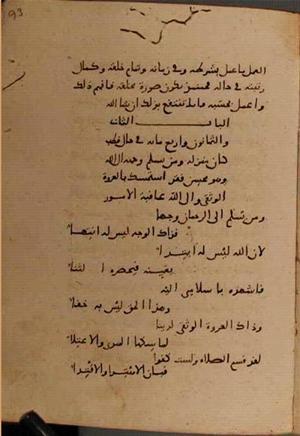 93
العمل باعمل بشرطه وفي زمانه وتمام خلقه وكمال
رتبته في حاله فحينئذ يكون صورة مخلقة فافهم ذلك
واعمل بحسبه فانك تنتفع بذلك ان شا الله
الباب الثاني
والثمانون واربع مائة في حال قطب
كان منزله ومن يسلم وجهه الى الله
وهو محسن فقد استمسك بالعروة
الوثقى والى الله عاقبة الامور
ومن يسلم الى الرحمان وجها
فذاك الوجه ليس له انتهاء
لان الله ليس له ابتداء
يعينه فيحصره الثناء
فاشهده باسلامي اليه
وهذا الحق ليس به خفاء
وذاك العروة الوثقى لدينا
لماسكها السنى والاعتلاء
لقد قسم الصلاة ولست كفوا
فبان الاقتداء